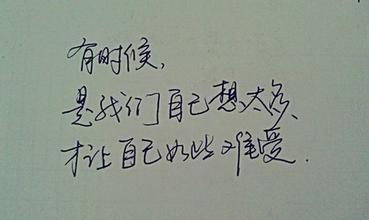 有时候,
是我们自己想太多、
才让自己如此难受.